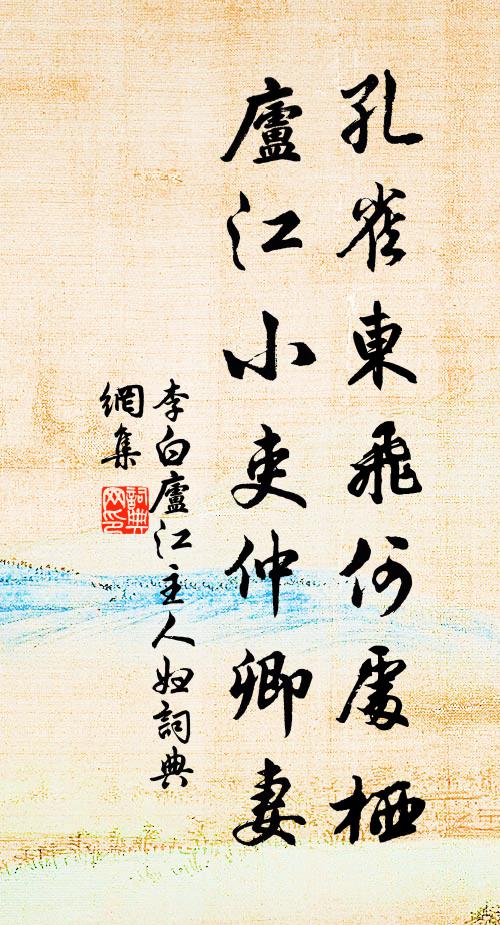 孔雀東飛何處栖
廬江小吏仲卿妻
李白廬江主人妇詞典
網集
詞典
网印